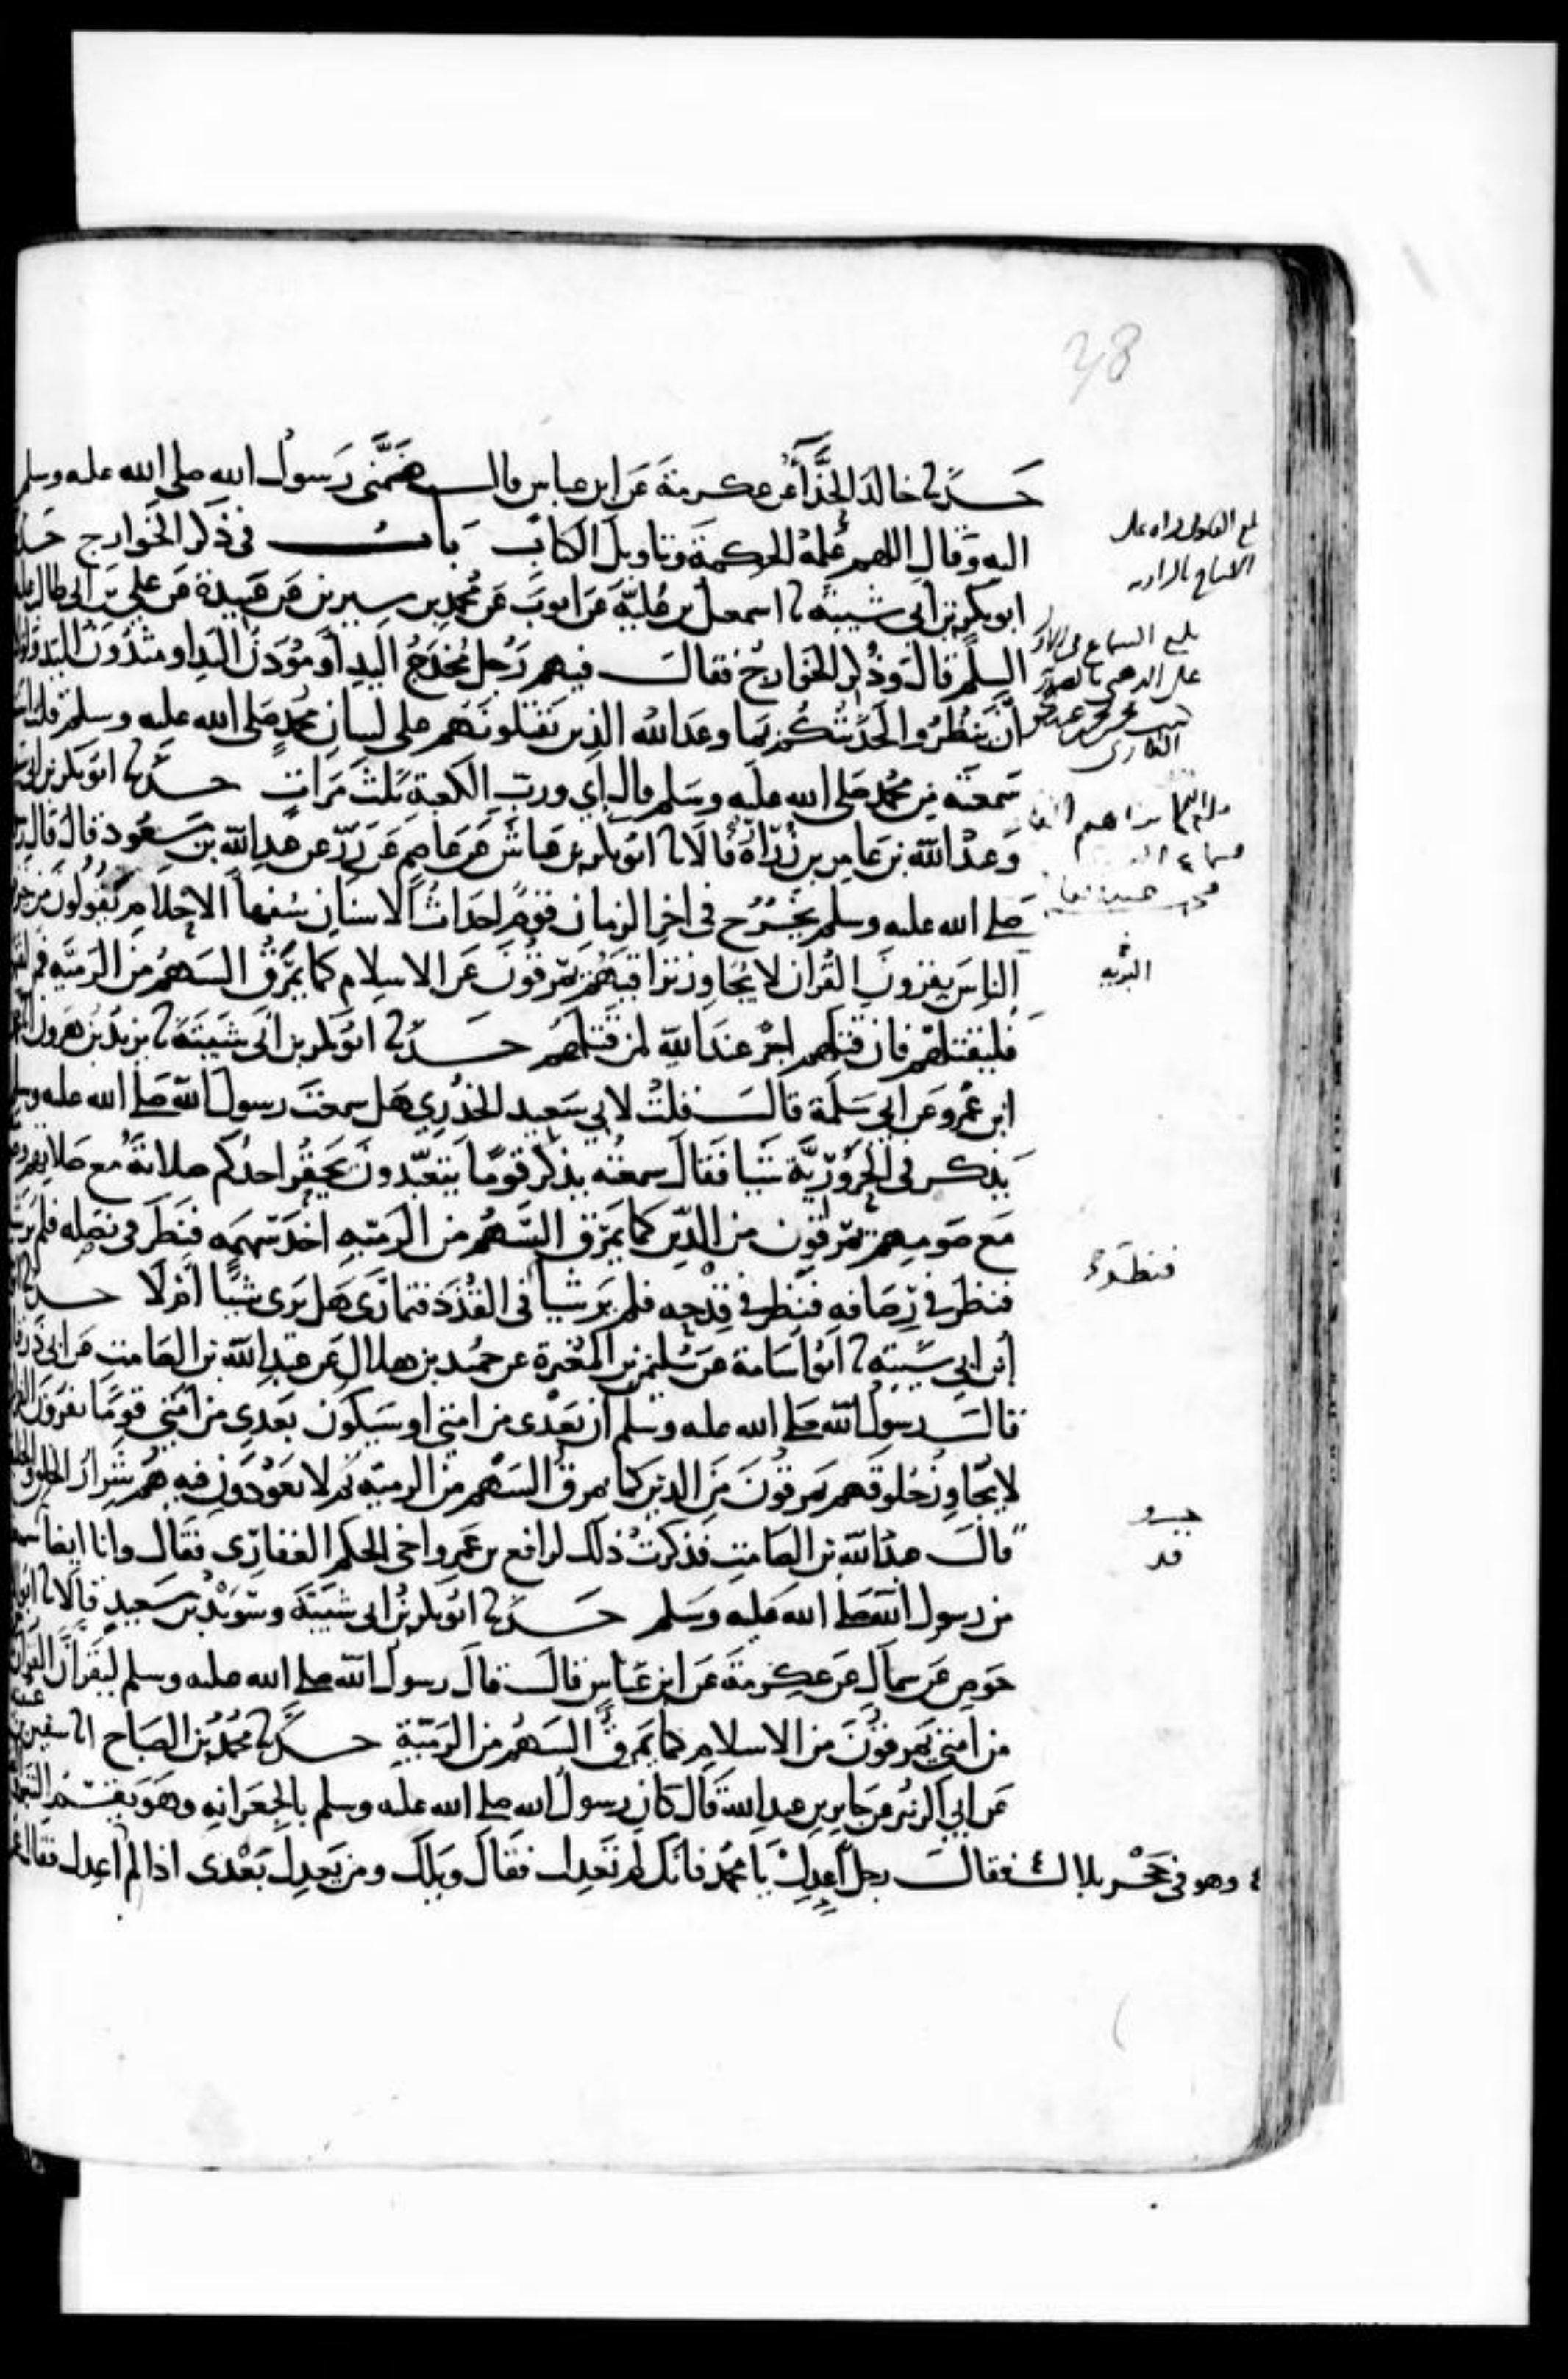 38
حدثنا خالد الحذاء عن عكرمة عن ابن عباس قال ضمني رسول الله صلى الله عليه وسلم
اليه وقال اللهم علمه الحكمة وتاويل الكتاب باب في ذكر الخوارج حدثنا
ابو بكر بن ابي شيبة نا اسمعيل بن علية عن ايوب عن محمد بن سيرين عن عبيدة عن علي بن ابي طالب عليه
السلم قال وذكر الخوارج فقال فيهم رجل مخدج اليد او مودن اليد او مثدون اليد ولولا
ان تبطروا لحدثتكم بما وعد الله الذين يقتلونهم على لسان محمد صلى الله عليه وسلم قلت انت
سمعته من محمد صلى الله عليه وسلم قال اي ورب الكعبة ثلث مرات حدثنا ابو بكر بن ابي
وعبد الله بن عامر بن زرارة قالا نا ابو بكر بن عياش عن عاصم عن زر عن عبد الله بن مسعود قال قال
صلى الله عليه وسلم يخرج في اخر الزمان قوم احداث الاسنان سفهاء الاحلام يقولون من خير
الناس يقرون القران لا يجاوز تراقيهم يمرقون من الاسلام كما يمرق السهم من الرمية فمن لقيهم
فليقتلهم فان قتلهم اجر عند الله لمن قتلهم حدثنا ابو بكر بن ابي شيبة نا يزيد بن هرون
ابن عمرو عن ابي سلمة قال قلت لابي سعيد الخدري هل سمعت رسول الله صلى الله عليه وسلم
يذكر في الحرورية شيا فقال سمعته يذكر قوما يتعبدون يحقر احدكم صلاته مع صلاتهم وصومه
مع صومهم يمرقون من الدين كما يمرق السهم من الرمية اخذ سهمه فنظر في نصله فلم ير شيا
فنظر في رصافه فنظر في قدحه فلم ير شيا في القذذ فتمارى هل يرى شيا ام لا حدثنا
ابن ابي شيبة نا ابو اسامة عن سليمن بن المغيرة عن حميد بن هلال عن عبد الله بن الصامت عن ابي ذر
قال رسول الله صلى الله عليه وسلم ان بعدي من امتي او سيكون بعدي من امتي قوما يقرون
لا يجاوز حلوقهم يمرقون من الدين كما يمرق السهم من الرمية ثم لا يعودون فيه هم شرار الخلق والخليقة
قال عبد الله بن الصامت فذكرت ذلك لرافع بن عمرو اخي الحكم الغفاري فقال وانا ايضا سمعته
من رسول الله صلى الله عليه وسلم حدثنا ابو بكر بن ابي شيبة وسويد بن سعيد قالا نا ابو
حوص عن سماك عن عكرمة عن ابن عباس قال قال رسول الله صلى الله عليه وسلم ليقران القران
من امتي يمرقون من الاسلام كما يمرق السهم من الرمية حدثنا محمد بن الصباح انا سفين
عن ابي الزبير عن جابر بن عبد الله قال كان رسول الله صلى الله عليه وسلم بالجعرانة وهو يقسم التبر
وهو في حجر بلال فقال رجل اعدل يا محمد فانك لم تعدل فقال ويلك ومن يعدل بعدي اذا لم اعدل فقال
بلغ السماع في
البرية
فنظر